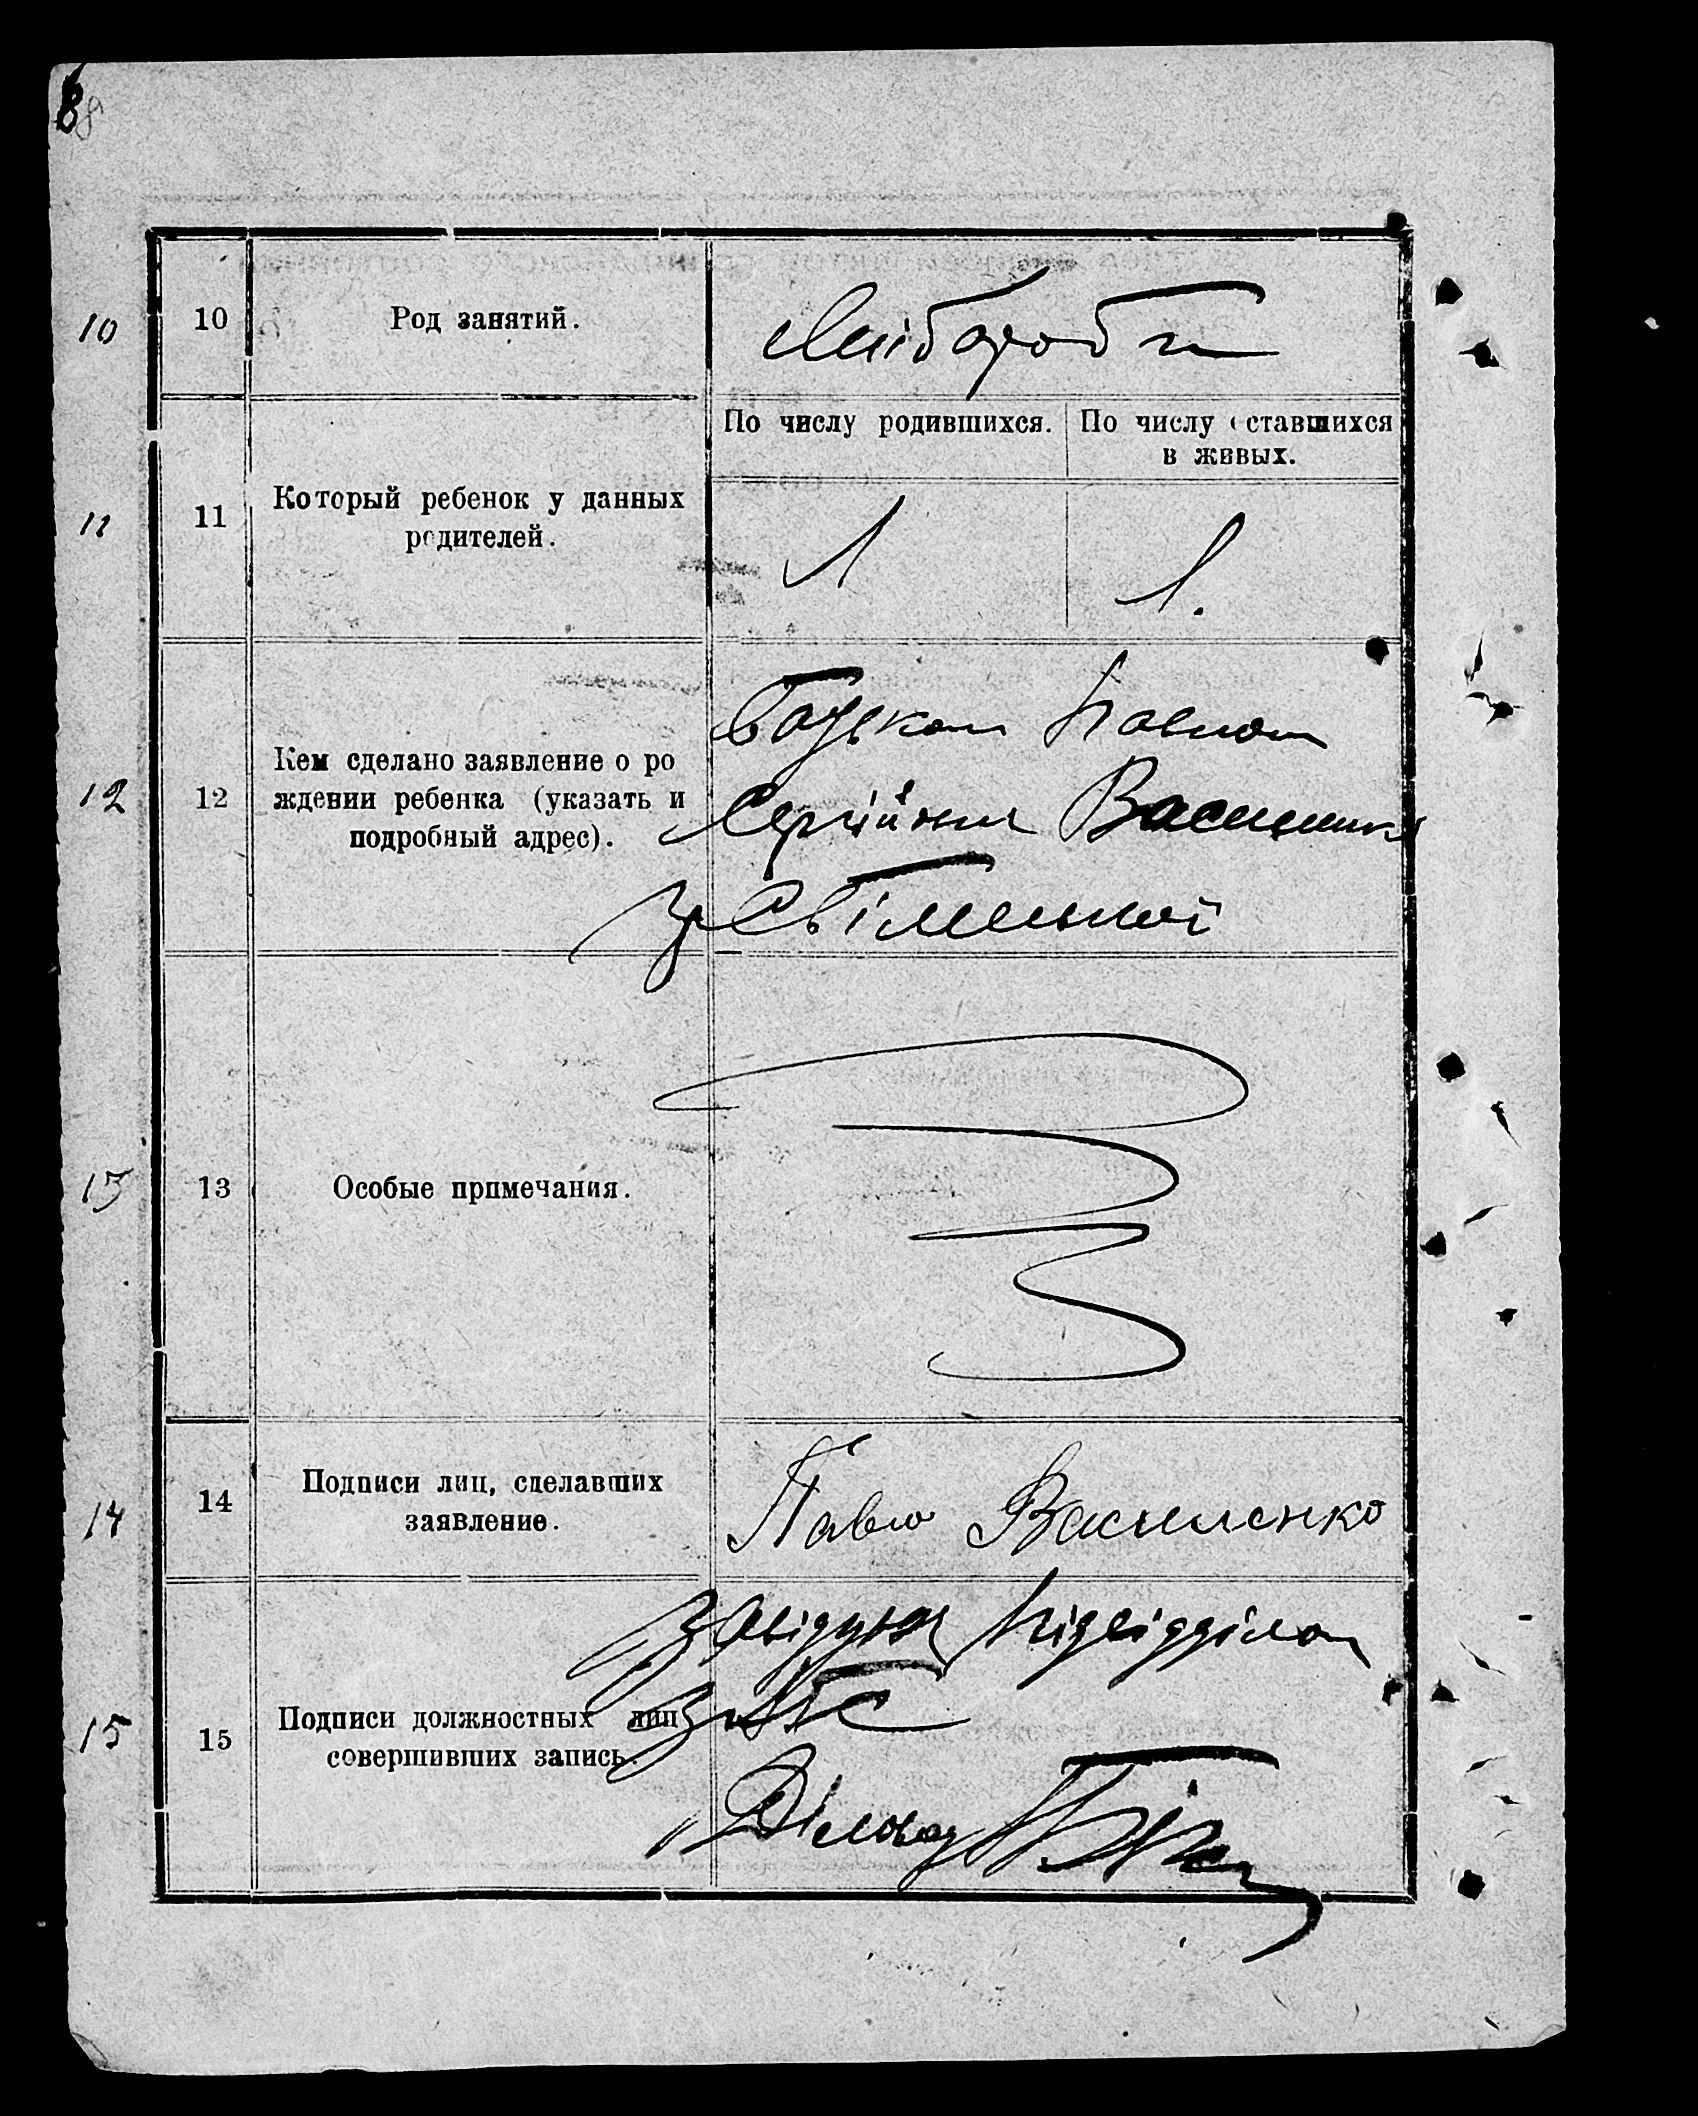 8
10 10 Род занятий. Хлібороби
По числу родившихся. По числу оставшихся
в живых.
11 11 Который ребенок у данных
родителей.
1 1.
12 12 Кем сделано заявление о ро
ждении ребенка (указать и
подробный адрес).
Батьком Павлом
Сергійови Василенко
з Світленької
13 13 Особые примечания.
14 14 Подписи лиц, сделавших
заявление.
Павло Василенко
15 15 Подписи должностных лиц
совершивших запись.
Завідуюч Підвідділом
ЗАГС
Діловод